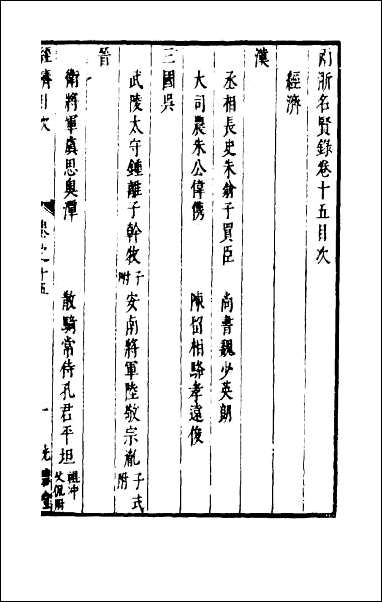 兩浙名賢錄卷十五目次
經濟
漢
丞相長史朱翁子買臣 尚書魏少英朗
大司農朱公偉儁 陳留相駱孝遠俊
三國吳
武陵太守鍾離子幹牧 子附 安南將軍陸敬宗胤 子式附
晉
衛將軍虞思奧潭 散騎常侍孔君平坦 祖沖父侃附
經濟目次 卷之十五 一 光碧堂